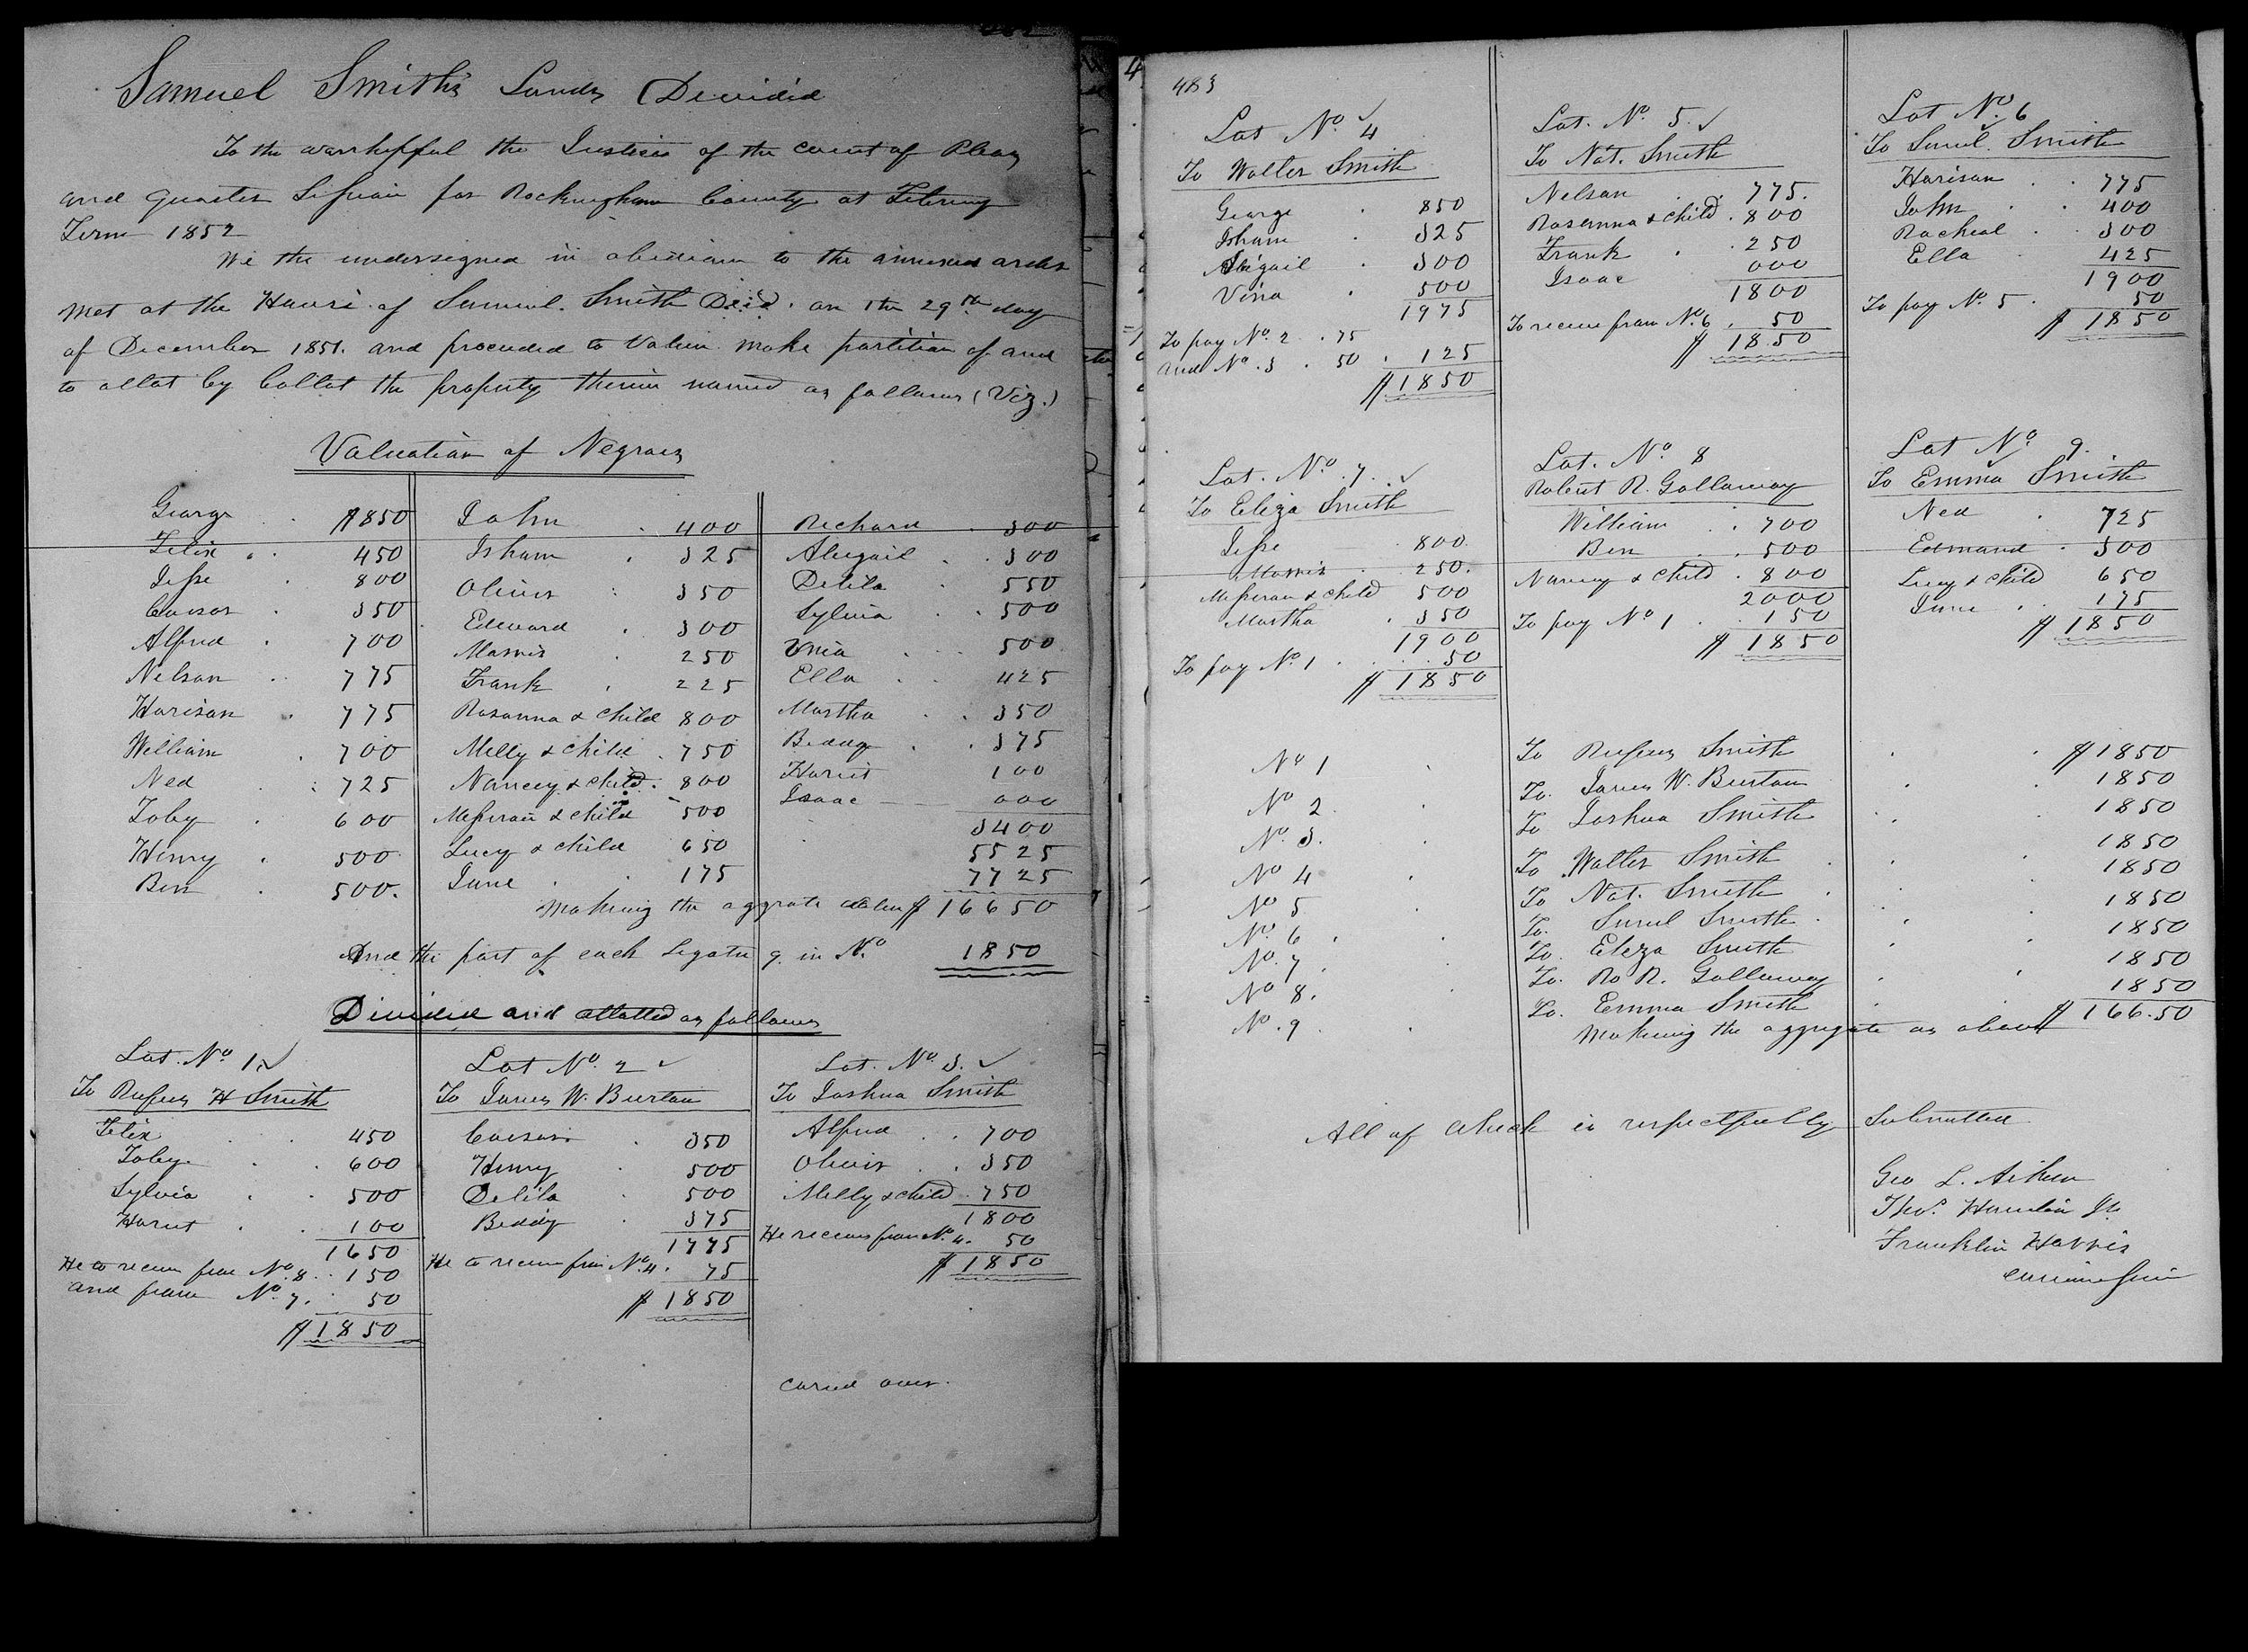 Samuel Smith's Lands Divided
To the worshipful the Justices of the court of Pleas
and Quarter Session for Rockingham County at Febuary
Term 1852
We the undersigned in obedience to the annexed order
met at the House of Samuel. Smith Dec'd. on the 29th day
of December 1851. and proceeded to Value make partition of and
to allot by ballot the property therein named as follows (Viz.)
Valuation of Negroes
George $850
Felix 450
Jesse 800
Caesar 350
Alfred 700
Nelson 775
Harison 775
William 700
Ned 725
Toby 600
Henry 500
Ben 500.
John 400
Isham 325
Oliver 350
Edward 300
Morris 250
Frank 225
Rosanna & child 800
Melly & child 750
Nancy & child 800
Messrau & child 500
Lucy & child 650
June 175
Richard 300
Abigail 300
Delila 550
Sylvia 500
Vina 500
Ella 425
Martha 350
Biddy 375
Hariet 100
Isaac 000
3400
5525
7725
making the aggrate value $ 16650
And the part of each Legatee 9. in No. 1850
Divided and allotted as follows
Lot. No 1.
To Rufus H Smith
Felix 450
Toby 600
Sylvia 500
Hariet 100
1650
He to receive from No. 8 150
and from No. 7. 50
$ 1850
Lot No. 2
To James W. Burton
Caesar 350
Henry 500
Delila 500
Biddy 375
1775
He to receive from No. 4. 75
$ 1850
Lot. No. 3.
To Joshua Smith
Alfred 700
Oliver 350
Melly & child 750
1800
He receives from No. 4. 50
$ 1850
caried over.
483
Lot No. 4
To Walter Smith
George 850
Isham 325
Abigail 300
Vina 500
1975
To pay No. 2 75
and No. 3 50 125
$ 1850
Lot. No. 5.
To Nat. Smith
Nelson 775.
Rosanna & child 800
Frank 250
Isaac 000
1800
To receive from No. 6 50
$ 1850
Lot No. 6
To Saml. Smith
Harison 775
John 400
Racheal 300
Ella 425
1900
To pay No. 5 50
$ 1850
Lot. No. 7.
To Eliza Smith
Jesse 800
Morris 250.
Messrau & child 500
Martha 350
1900
To pay No. 1 50
$ 1850
Lot. No. 8
Robert R. Gallaway
William 700
Ben 500
Nancy & child 800
2000
To pay No 1 150
$ 1850
Lot No. 9.
To Emma Smith
Ned 725
Edmand 300
Lucy & child 650
June 175
$ 1850
No 1 To Rufus Smith $ 1850
No 2 To. James W. Burton 1850
No. 3. To Joshua Smith 1850
No 4 To Walter Smith 1850
No 5 To Nat. Smith 1850
No. 6 To. Saml Smith 1850
No. 7 To. Eliza Smith 1850
No 8. To. Ro R. Gallaway 1850
No. 9 To. Emma Smith 1850
making the aggregate as above $ 166.50
All of which is respectfully Submitted
Geo L. Aiken
Thos. Hamlin Jr.
Franklin Harris